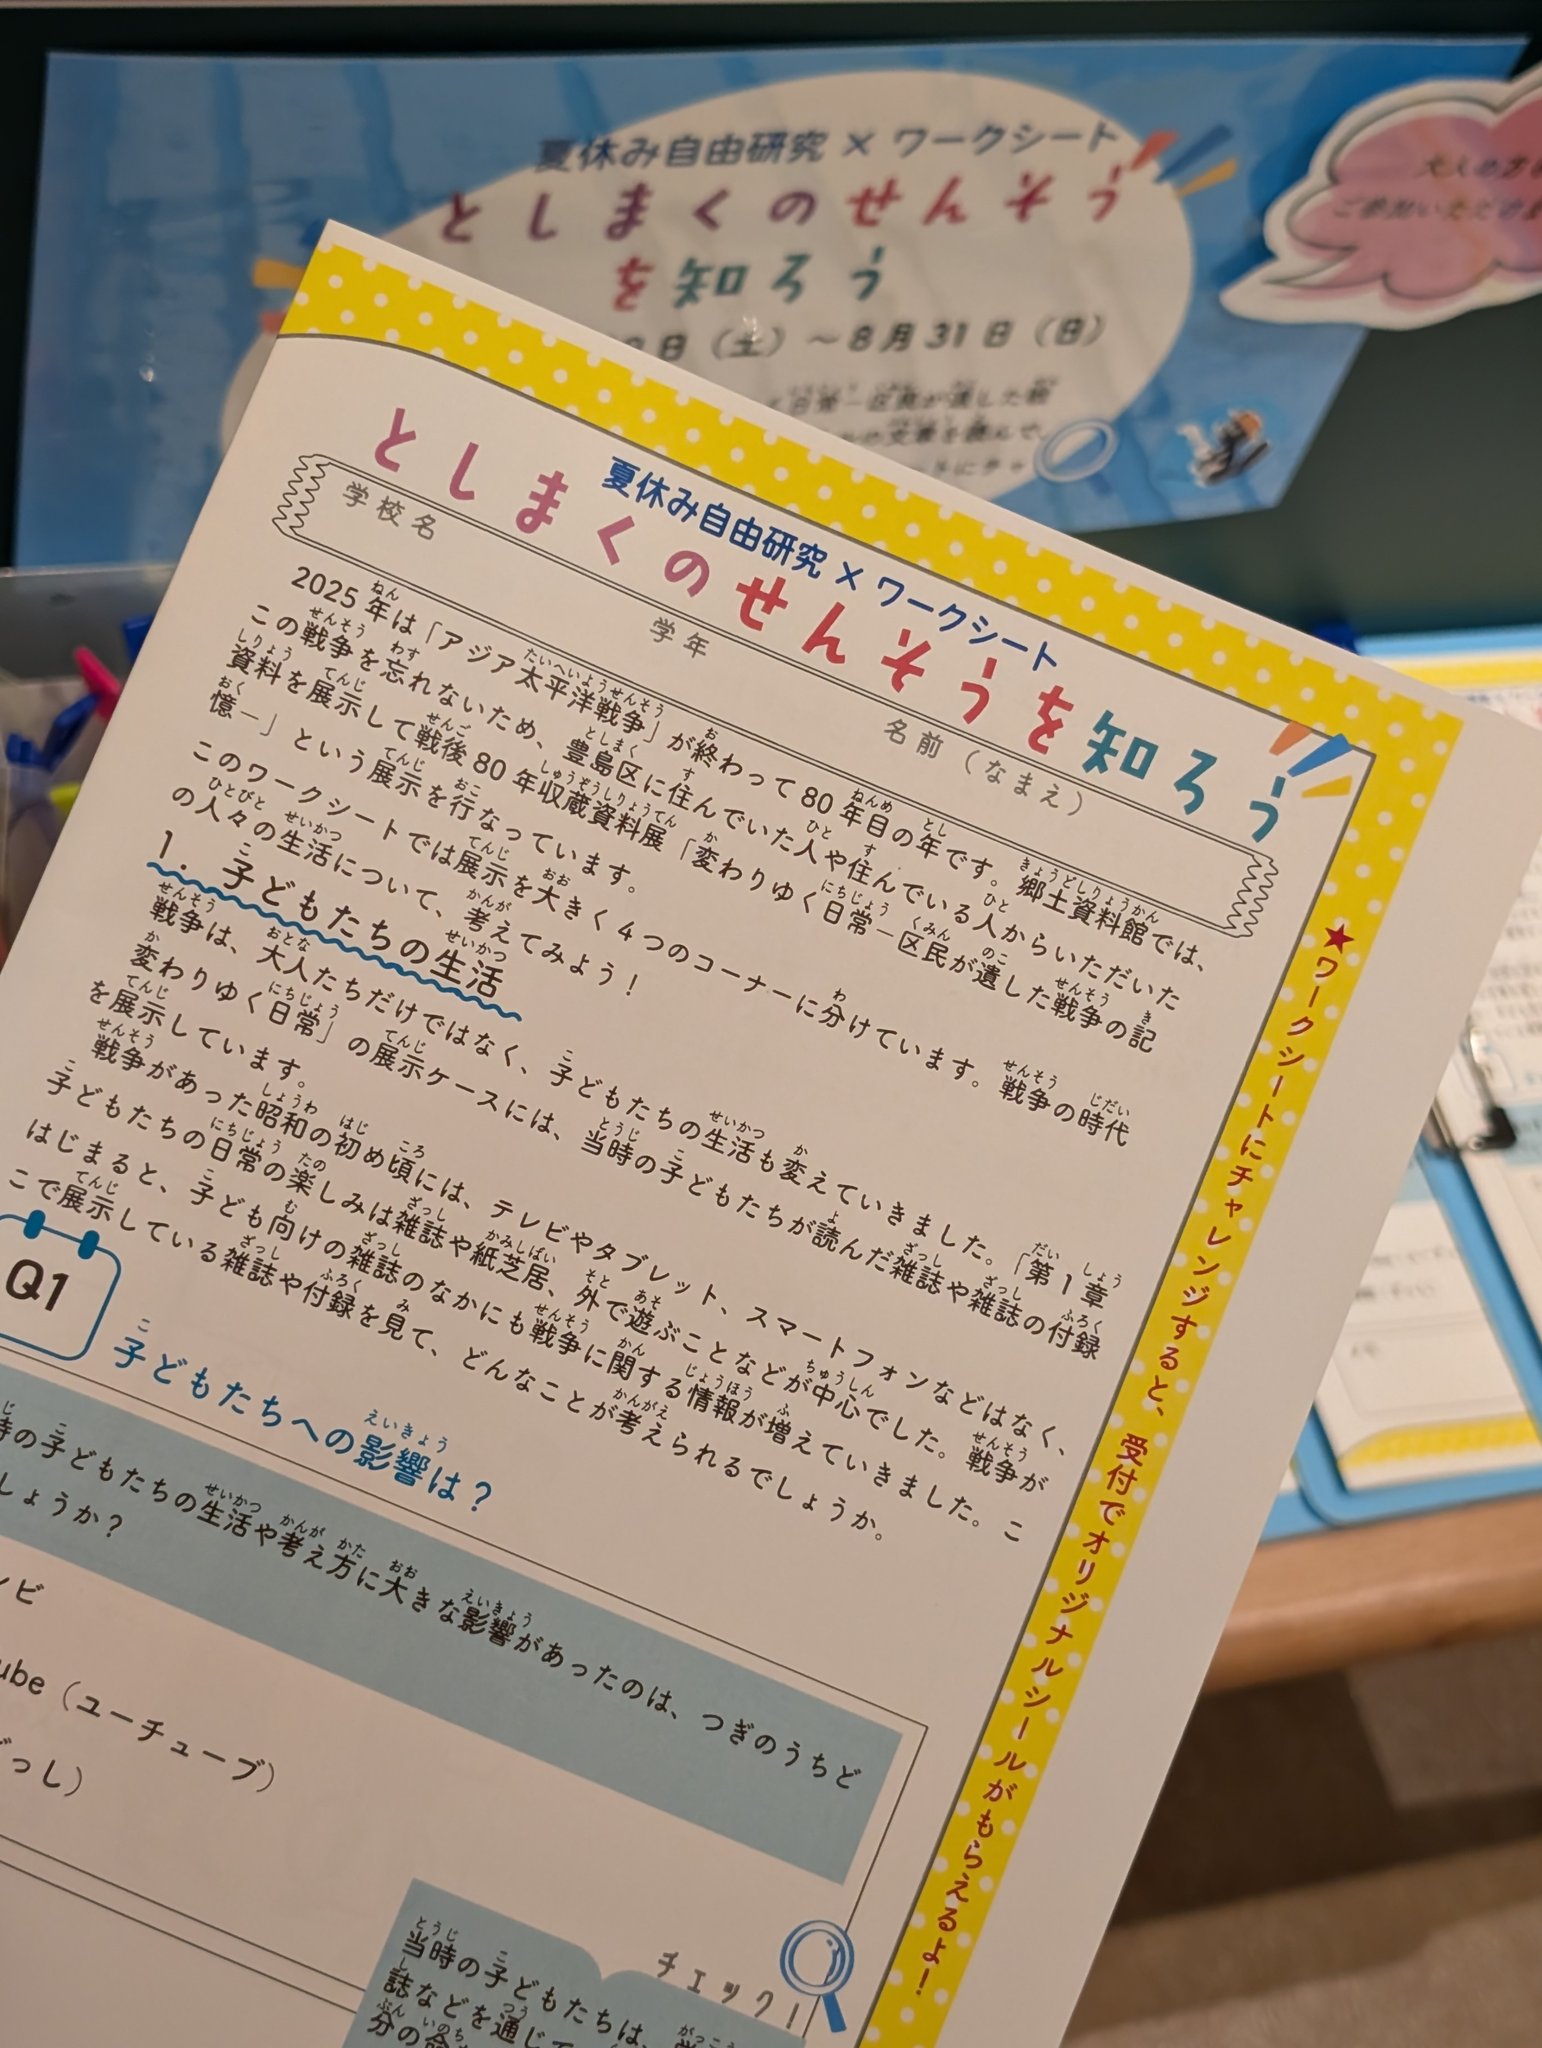 夏休み自由研究 × ワークシート
としまくのせんそう
を知ろう
日（土）～8月31日（日）
夏休み自由研究 × ワークシート
としまくのせんそうを知ろう
学校名 学年 名前（なまえ）
2025年は「アジア太平洋戦争」が終わって80年目の年です。郷土資料館では、
この戦争を忘れないため、豊島区に住んでいた人や住んでいる人からいただいた
資料を展示して戦後80年収蔵資料展「変わりゆく日常－区民が遺した戦争の記
憶－」という展示を行なっています。
このワークシートでは展示を大きく4つのコーナーに分けています。戦争の時代
の人々の生活について、考えてみよう！
1. 子どもたちの生活
戦争は、大人たちだけではなく、子どもたちの生活も変えていきました。「第1章
変わりゆく日常」の展示ケースには、当時の子どもたちが読んだ雑誌や雑誌の付録
を展示しています。
戦争があった昭和の初め頃には、テレビやタブレット、スマートフォンなどはなく、
子どもたちの日常の楽しみは雑誌や紙芝居、外で遊ぶことなどが中心でした。戦争が
はじまると、子ども向けの雑誌のなかにも戦争に関する情報が増えていきました。こ
こで展示している雑誌や付録を見て、どんなことが考えられるでしょうか。
Q1
子どもたちへの影響は？
時の子どもたちの生活や考え方に大きな影響があったのは、つぎのうちど
しょうか？
レビ
ube（ユーチューブ）
っし）
チェック！
当時の子どもたちは、
誌などを通じて
分の命
★ワークシートにチャレンジすると、受付でオリジナルシールがもらえるよ！